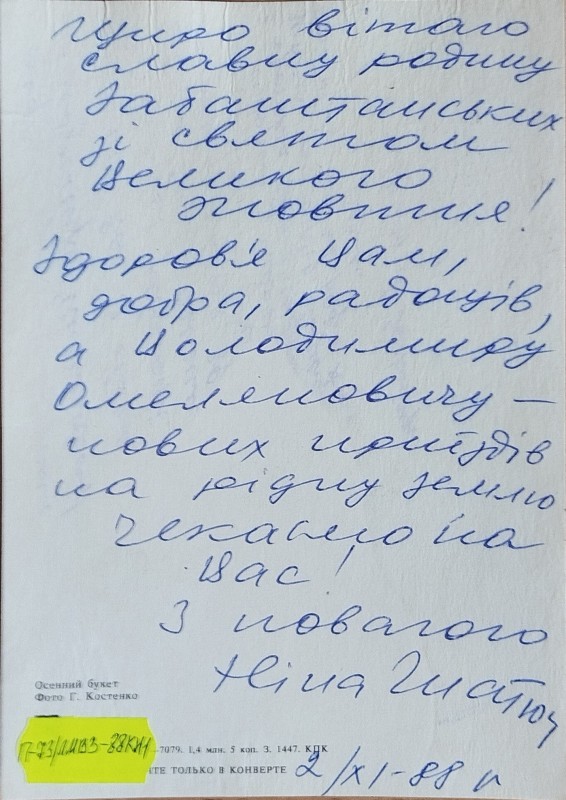 Щиро вітаю
славну родину
Забаштанських
зі святом
Великого
Жовтня!
Здоров'я Вам,
добра, радощів,
а Володимиру
Омеляновичу —
нових приїздів
на рідну землю
Чекаємо на
Вас!
З повагою
Ніна Гнатюк
Осенний букет
Фото Г. Костенко
П-73/ЛМВЗ-88КН1
-7079. 1,4 млн. 5 коп. З. 1447. КПК
ТОЛЬКО В КОНВЕРТЕ
2/XI-88 р